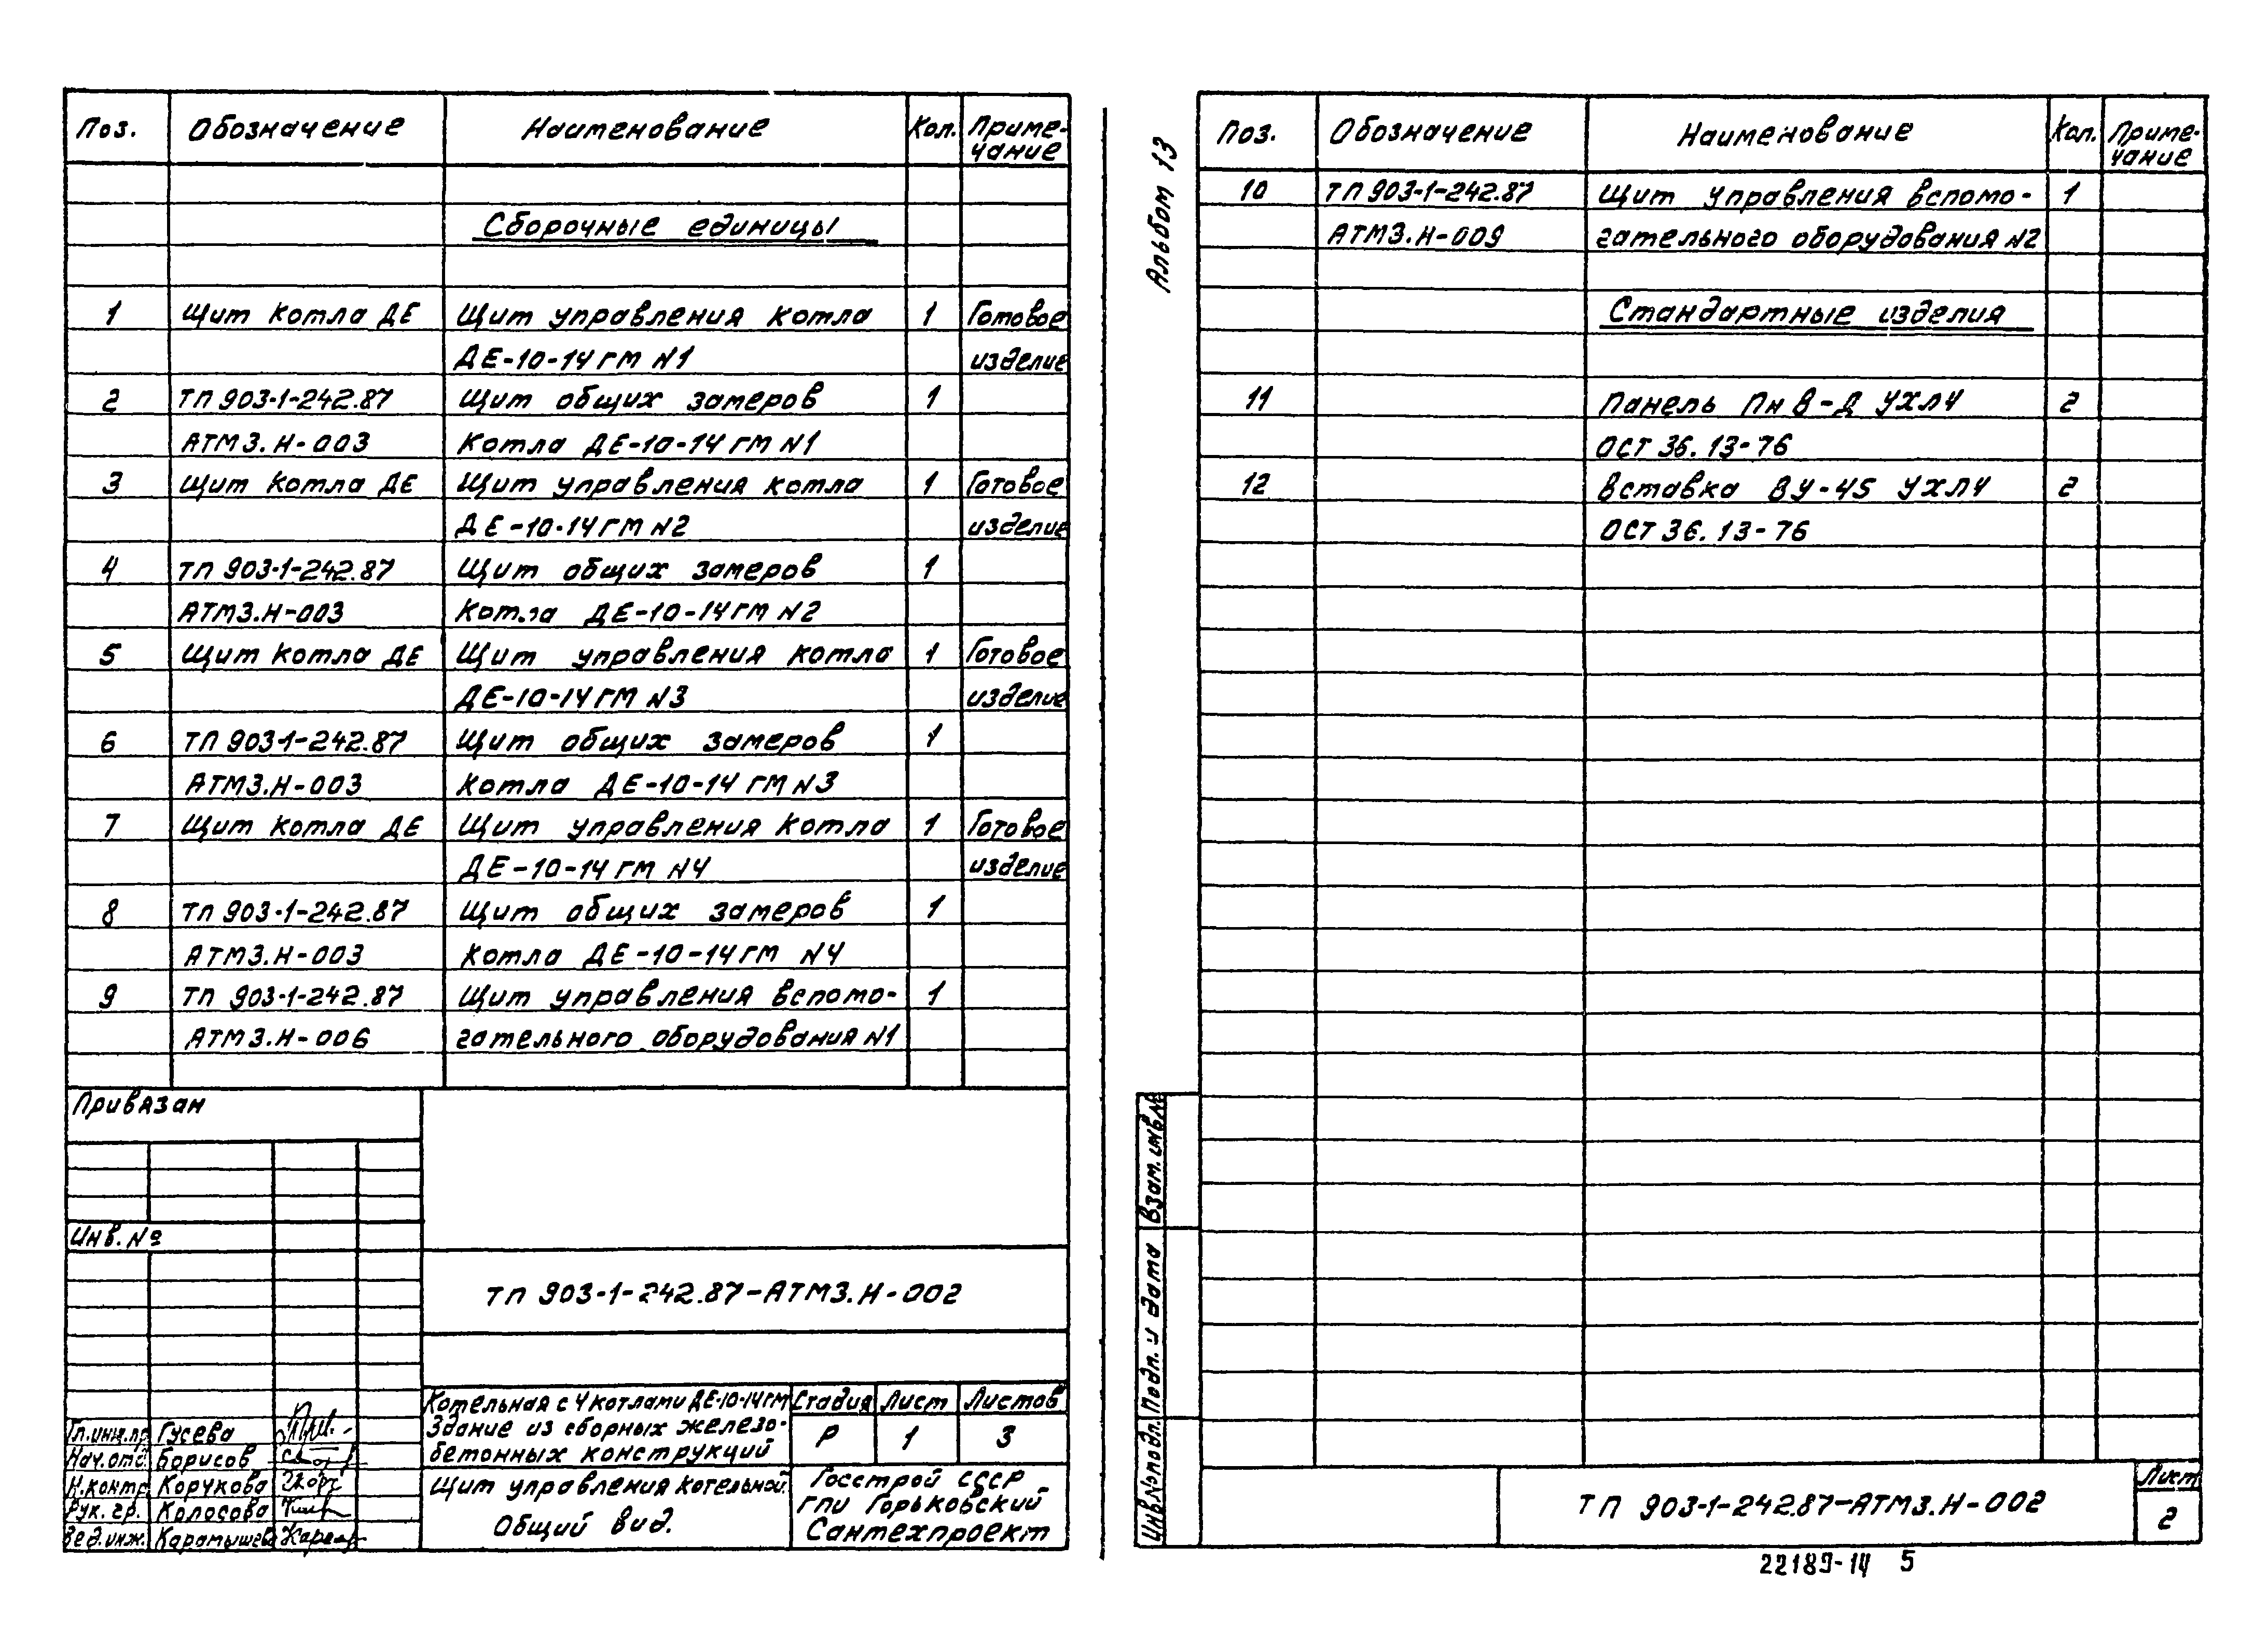 Поз. Обозначение Наименование Кол. Приме-
чание
Сборочные единицы
1 Щит котла ДЕ Щит управления котла 1 Готовое
ДЕ-10-14 ГМ N1 изделие
2 ТП 903-1-242.87 Щит общих замеров 1
АТМ3.Н-003 Котла ДЕ-10-14 ГМ N1
3 Щит котла ДЕ Щит управления котла 1 Готовое
ДЕ-10-14 ГМ N2 изделие
4 ТП 903-1-242.87 Щит общих замеров 1
АТМ3.Н-003 Котла ДЕ-10-14 ГМ N2
5 Щит котла ДЕ Щит управления котла 1 Готовое
ДЕ-10-14 ГМ N3 изделие
6 ТП 903-1-242.87 Щит общих замеров 1
АТМ3.Н-003 Котла ДЕ-10-14 ГМ N3
7 Щит котла ДЕ Щит управления котла 1 Готовое
ДЕ-10-14 ГМ N4 изделие
8 ТП 903-1-242.87 Щит общих замеров 1
АТМ3.Н-003 Котла ДЕ-10-14 ГМ N4
9 ТП 903-1-242.87 Щит управления вспомо- 1
АТМ3.Н-006 гательного оборудования N1
Привязан
Инв. №
ТП 903-1-242.87-АТМ3.Н-002
Котельная с 4 котлами ДЕ-10-14 ГМ
Здание из сборных железо-
бетонных конструкций
Стадия Лист Листов
Р 1 3
Гл.инж.пр. Гусева
Нач.отд. Борисов
Н.контр. Корукова
Рук. гр. Колосова
Вед.инж. Карамышева
Щит управления котельной.
Общий вид.
Госстрой СССР
ГПИ Горьковский
Сантехпроект
Альбом 13
Поз. Обозначение Наименование Кол. Приме-
чание
10 ТП 903-1-242.87 Щит управления вспомо- 1
АТМ3.Н-009 гательного оборудования N2
Стандартные изделия
11 Панель Пн В-Д УХЛ4 2
ОСТ 36.13-76
12 Вставка ВУ-45 УХЛ4 2
ОСТ 36.13-76
Взам. инв. №
Подп. и дата
Инв. № подл.
ТП 903-1-242.87-АТМ3.Н-002
Лист
2
22189-14 5